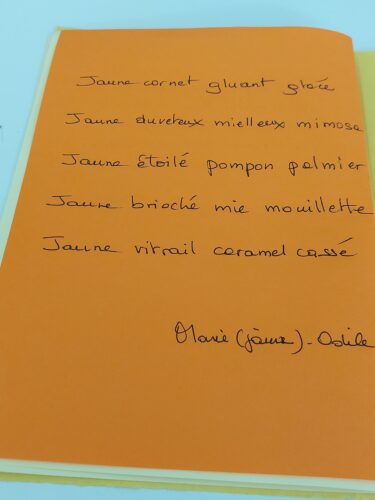 Jaune cornet gluant glacé
Jaune duveteux mielleux mimosa
Jaune étoilé pompon palmier
Jaune brioché mie mouillette
Jaune vitrail caramel cassé
Marie (jaune)-Odile